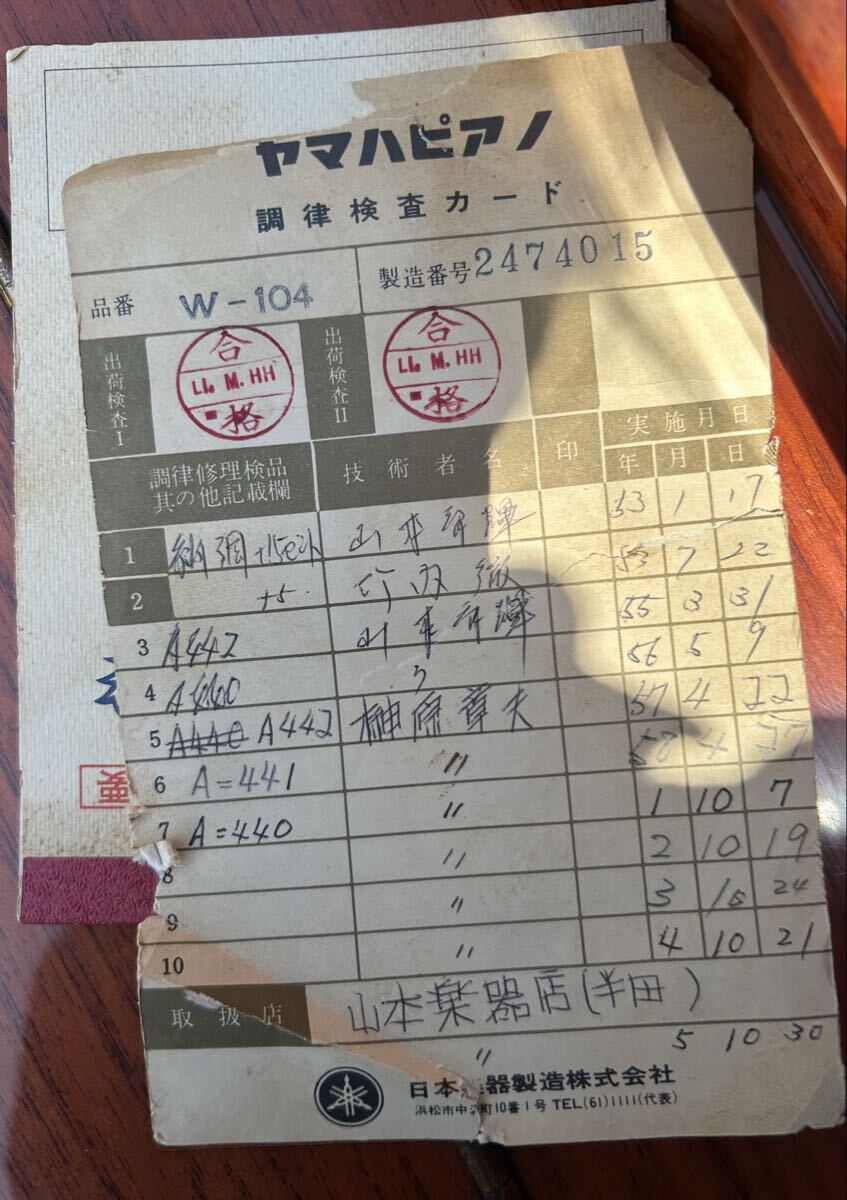 ヤマハピアノ
調律検査カード
品番 W-104 製造番号 2474015
出荷検査I 合 LL M.HH 格 出荷検査II 合 LL M.HH 格
調律修理検品 其の他記載欄 技術者名 印 実施月日
年 月 日
1 納調 +15セント 山本 53 1 17
2 +5 竹内 徹 53 7 22
3 A442 山本 55 3 31
4 A440 〃 56 5 9
5 A440 A442 榊原章夫 57 4 22
6 A=441 〃 58 4 27
7 A=440 〃 1 10 7
8 〃 2 10 19
9 〃 3 10 24
10 〃 4 10 21
取扱店 山本楽器店(半田)
〃 5 10 30
日本楽器製造株式会社
浜松市中沢町10番1号 TEL(61)1111(代表)